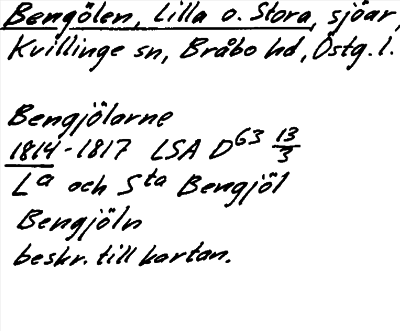 Bengölen, Lilla o. Stora, sjöar,
Kvillinge sn, Bråbo hd, Östg. l.
Bengjölarne
1814-1817 LSA D63 13/3
La och Sta Bengjöl
Bengjöln
beskr. till kartan.